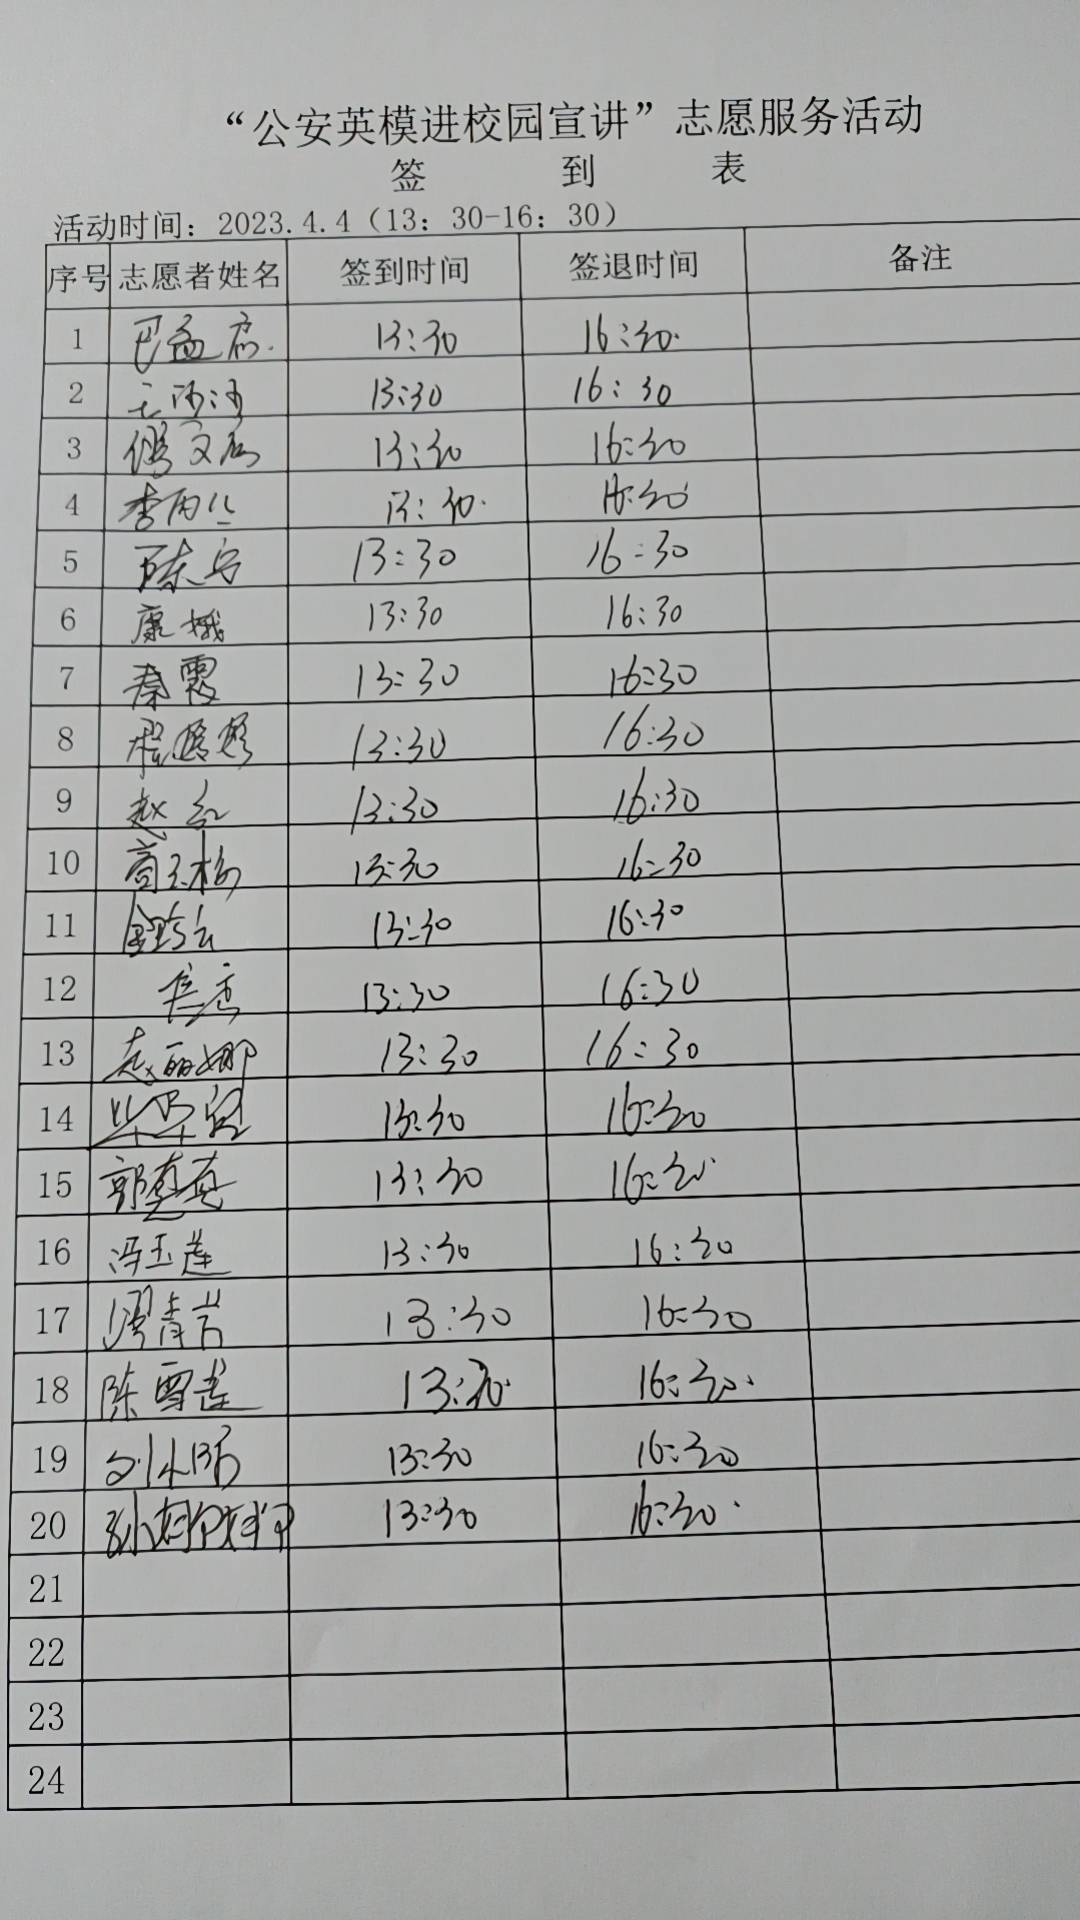 “公安英模进校园宣讲”志愿服务活动
签 到 表
活动时间：2023.4.4（13：30-16：30）
序号 志愿者姓名 签到时间 签退时间 备注
1 13:30 16:30
2 13:30 16:30
3 13:30 16:30
4 李 13:30 16:30
5 陈 13:30 16:30
6 康娥 13:30 16:30
7 秦霞 13:30 16:30
8 13:30 16:30
9 赵红 13:30 16:30
10 高玉梅 13:30 16:30
11 13:30 16:30
12 13:30 16:30
13 赵丽娜 13:30 16:30
14 13:30 16:30
15 郭真真 13:30 16:30
16 冯玉莲 13:30 16:30
17 13:30 16:30
18 陈雪莲 13:30 16:30
19 13:30 16:30
20 孙 13:30 16:30
21
22
23
24